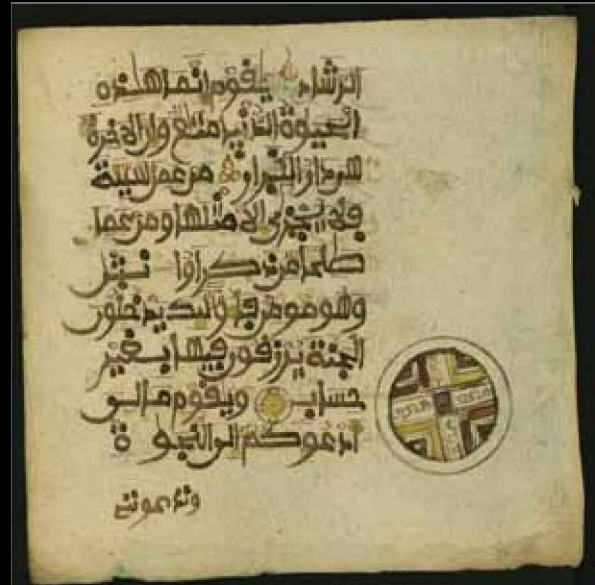 الرشاد يقوم انما هذه
الحيوة الدنيا متع وان الاخرة
هى دار القرار من عمل سيئة
فلا يجزى الا مثلها ومن عمل
صلحا من ذكر او انثى
وهو مومن فاولئك يدخلون
الجنة يرزقون فيها بغير
حساب ويقوم مالى
ادعوكم الى النجوة
وتدعوننى